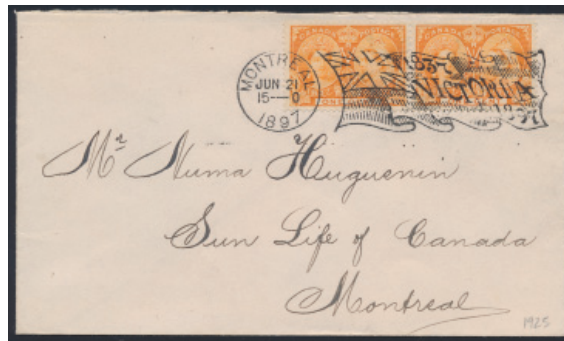 MONTREAL
JUN 21
15—0
1897
1837
VICTORIA
1897
Mr Numa Huguenin
Sun Life of Canada
Montreal
1925